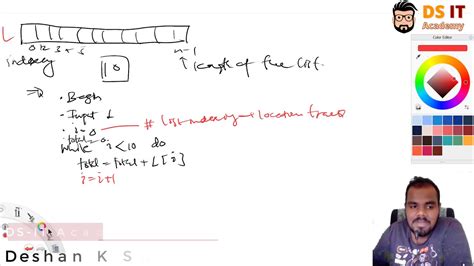 DS IT
Academy
Color Editor
L
0 1 2 3 4 5 n-1
indexing 10 length of the list.
• Begin
• Input L
• i=0 # List indexing → location
total=0
while i<10 do
total = total + L[i]
i=i+1
DS-IT Aca
Deshan K S